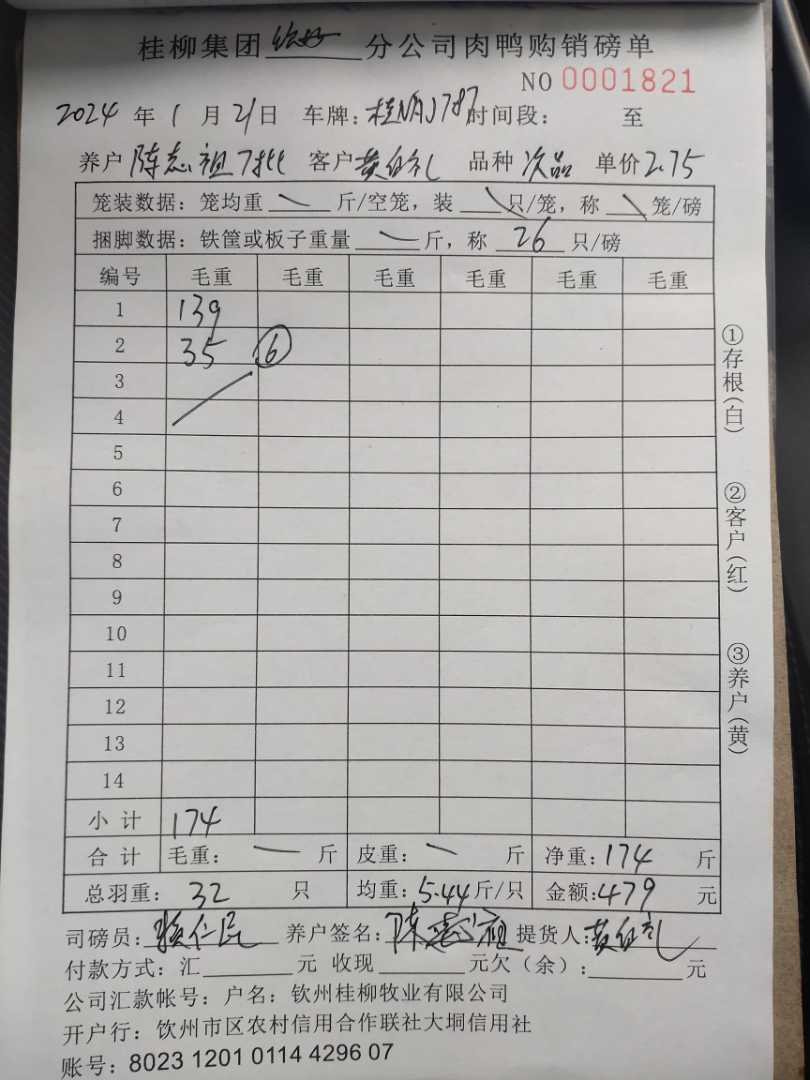 桂柳集团 钦好 分公司肉鸭购销磅单
NO 0001821
2024 年 1 月 21 日 车牌: 桂NAJ787 时间段: 至
养户 陈志祖7批 客户 黄白礼 品种 次品 单价 2.75
笼装数据: 笼均重 — 斤/空笼, 装 \ 只/笼, 称 \ 笼/磅
捆脚数据: 铁筐或板子重量 — 斤, 称 26 只/磅
编号 毛重 毛重 毛重 毛重 毛重 毛重
1 139
2 35 ⑥
3
4
5
6
7
8
9
10
11
12
13
14
小计 174
合计 毛重: — 斤 皮重: — 斤 净重: 174 斤
总羽重: 32 只 均重: 5.44 斤/只 金额: 479 元
司磅员: 仁民 养户签名: 陈志祖 提货人: 黄白礼
付款方式: 汇 元 收现 元欠(余): 元
公司汇款帐号: 户名: 钦州桂柳牧业有限公司
开户行: 钦州市区农村信用合作联社大垌信用社
账号: 8023 1201 0114 4296 07
①存根(白)
②客户(红)
③养户(黄)